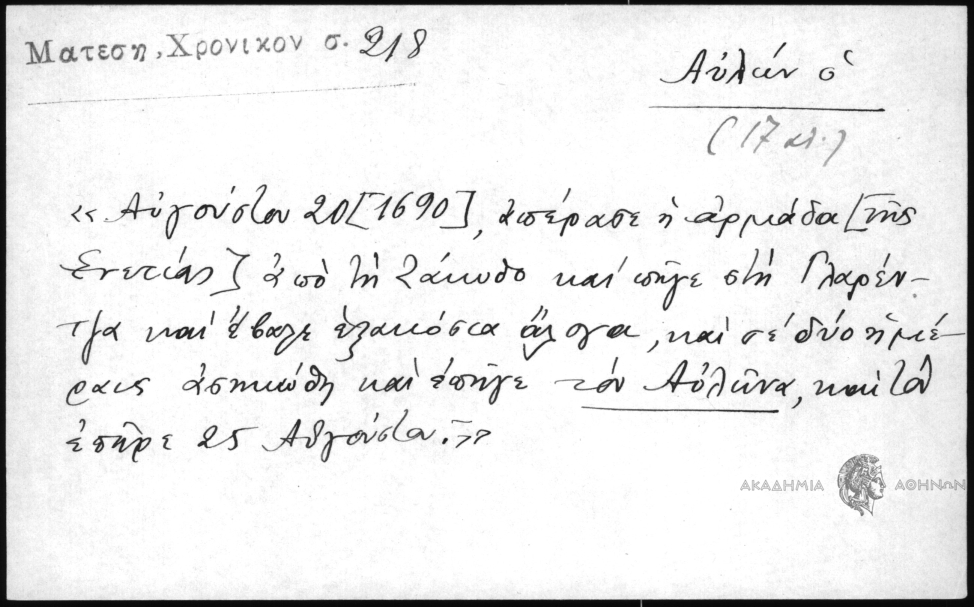 Ματεση, Χρονικον σ. 218
Αὐλών ὁ
(17 αι.)
«Αὐγούστου 20 [1690], ἀπέρασε ἡ ἀρμάδα [τῆς
Ενετίας] ἀπὸ τὴ Ζάκυθο καὶ πῆγε στὴ Γλαρέν-
τζα καὶ ἔβαλε ἑξακόσια ἄλογα, καὶ σὲ δύο ἡμέ-
ραις ἀσηκώθη καὶ ἐπῆγε τὸν Αὐλῶνα, καὶ τὸν
ἐπῆρε 25 Αὐγούστου.»
ΑΚΑΔΗΜΙΑ ΑΘΗΝΩΝ